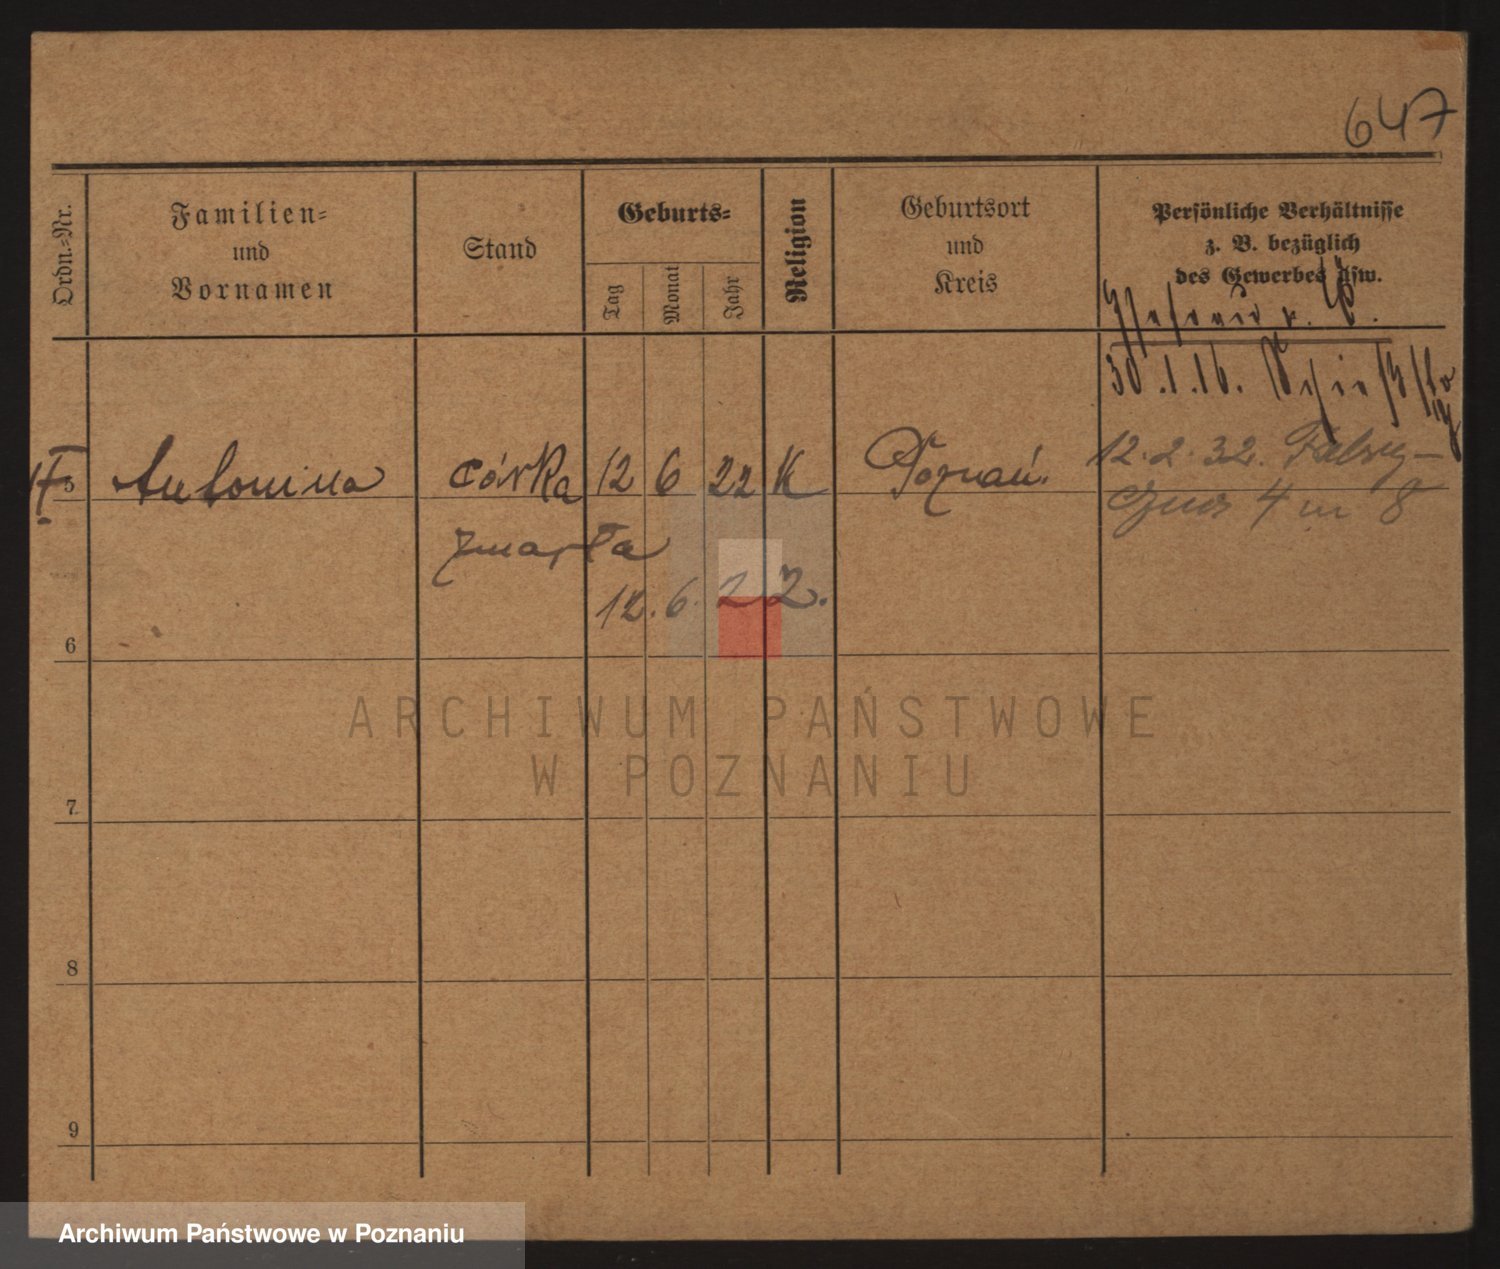 647
Ordn.-Nr.
Familien-
und
Vornamen
Stand
Geburts-
Tag
Monat
Jahr
Religion
Geburtsort
und
Kreis
Persönliche Verhältnisse
z. B. bezüglich
des Gewerbes usw.
30.1.16.
5 Antonina córka 12 6 22 K Poznań.
12.2.32. Fabry-
czna 4 m 8
zmarła
12.6.22.
6
7
8
9
ARCHIWUM PAŃSTWOWE
W POZNANIU
Archiwum Państwowe w Poznaniu